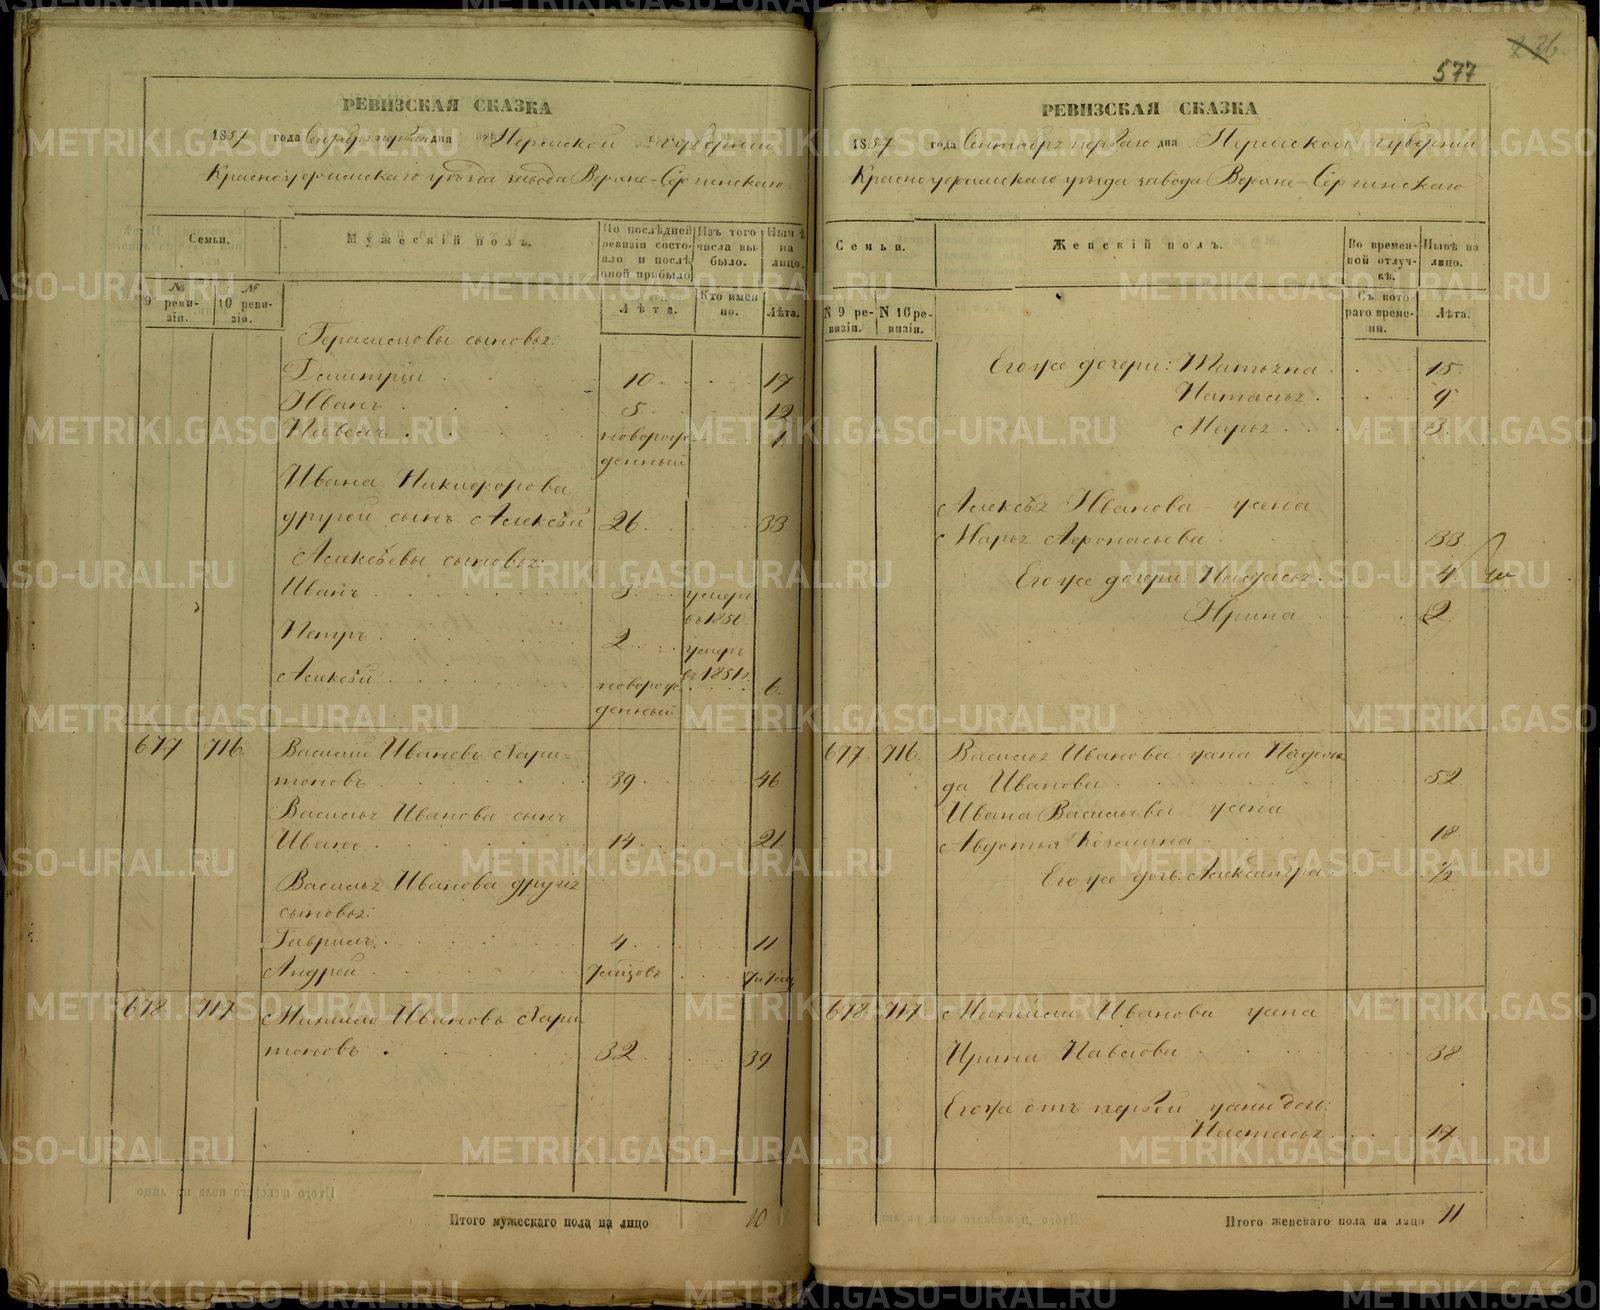 236
577
РЕВИЗСКАЯ СКАЗКА
1857 года Сентября первого дня Пермской губернии
Красноуфимскаго уѣзда завода Верхне-Сергинскаго
Семьи.
Мужескій полъ.
По послѣдней ревизіи состояло и послѣ оной прибыло
Изъ того числа выбыло.
Нынѣ на лицо.
№ 9 ревизіи.
№ 10 ревизіи.
Лѣта.
Кто именно.
Лѣта.
Герасимовы сыновья:
Дмитрій 10 17
Иванъ 5 12
Павелъ новорожденный 7
Ивана Никифорова
другой сынъ Алексѣй 26 33
Алексѣевы сыновья:
Иванъ 3 умеръ въ 1850
Петръ 2 умеръ въ 1851
Алексѣй новорожденный 6
677 716 Василій Ивановъ Хари-
тоновъ 39 46
Василья Иванова сынъ
Иванъ 14 21
Василья Иванова другія
сыновья:
Гаврилъ 4 11
Андрей
678 717 Михайло Ивановъ Хари
тоновъ 32 39
Итого мужескаго пола на лицо 10
РЕВИЗСКАЯ СКАЗКА
1857 года Сентября первого дня Пермской губерніи
Красноуфимскаго уѣзда завода Верхне-Сергинскаго
Семьи.
Женскій полъ.
Во временной отлучкѣ.
Нынѣ на лицо.
N 9 ревизіи.
N 10 ревизіи.
Съ котораго времени.
Лѣта.
Его же дочери: Татьяна 15
Наталья 9
Марья 3
Алексѣя Иванова жена
Марья Афонасьева 33
Его же дочери Настасья 4
Ирина 2
677 716 Василья Иванова жена Надеж
да Иванова 52
Ивана Васильева жена
Авдотья Козмина 18
Его же дочь Александра 1/2
678 717 Михайла Иванова жена
Ирина Павлова 38
Его же отъ первой жены дочь:
Настасья 17
Итого женскаго пола на лицо 11
METRIKI.GASO-URAL.RU